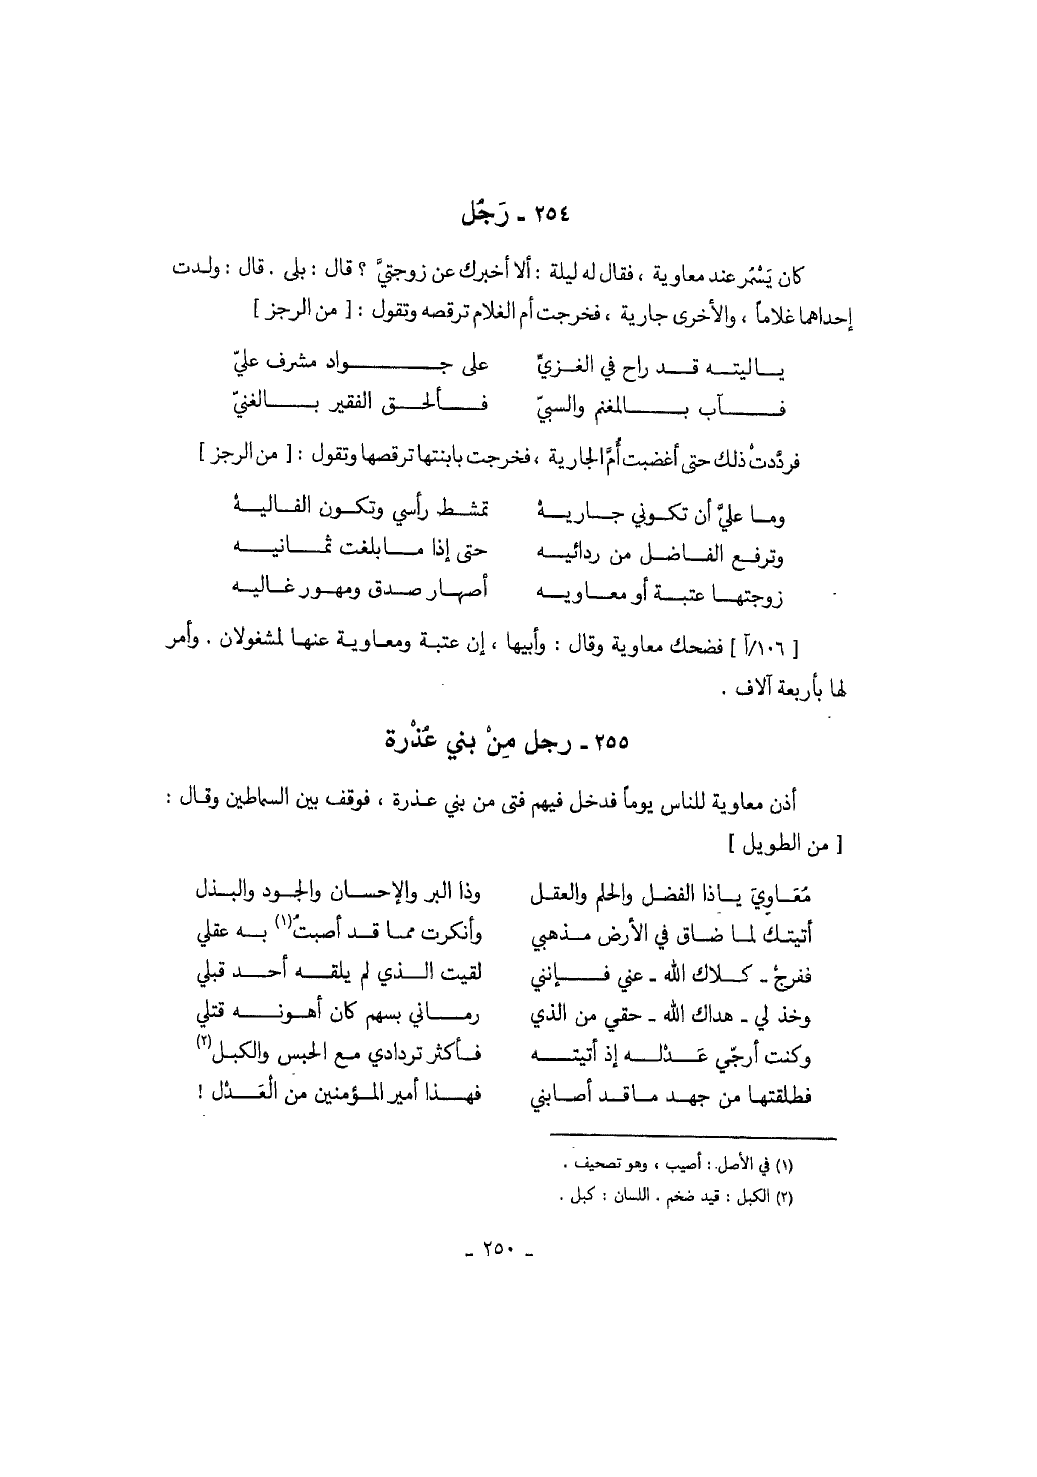 ٢٥٤ ـ رَجُل
كان يَسْمُر عند معاوية ، فقال له ليلة : ألا أخبرك عن زوجتيَّ ؟ قال : بلى . قال : ولدت
إحداهما غلاماً ، والأخرى جارية ، فخرجت أم الغلام ترقصه وتقول : [ من الرجز ]
يا ليته قد راح في الغزيِّ على جواد مشرف عليّ
فآب بالمغنم والسبيّ فألحق الفقير بالغنيّ
فردَّدتْ ذلك حتى أغضبت أُمَّ الجارية ، فخرجت بابنتها ترقصها وتقول : [ من الرجز ]
وما عليَّ أن تكوني جاريهْ تمشط رأسي وتكون الفاليهْ
وترفع الفاضل من ردائيه حتى إذا ما بلغت ثمانيه
زوجتها عتبة أو معاويه أصهار صدق ومهور غاليه
[ ١٠٦/آ ] فضحك معاوية وقال : وأبيها ، إن عتبة ومعاوية عنها لمشغولان . وأمر
لها بأربعة آلاف .
٢٥٥ ـ رجل مِنْ بني عُذْرة
أذن معاوية للناس يوماً فدخل فيهم فتى من بني عذرة ، فوقف بين السماطين وقال :
[ من الطويل ]
مُعَاوِيَ يا ذا الفضل والحلم والعقل وذا البر والإحسان والجود والبذل
أتيتك لما ضاق في الأرض مذهبي وأنكرت مما قد أصبتُ(١) به عقلي
ففرجْ ـ كلاك الله ـ عني فإنني لقيت الذي لم يلقه أحد قبلي
وخذ لي ـ هداك الله ـ حقي من الذي رماني بسهم كان أهونه قتلي
وكنت أرجّي عَدْله إذ أتيته فأكثر تردادي مع الحبس والكبل(٢)
فطلقتها من جهد ما قد أصابني فهذا أمير المؤمنين من الْعَدْل !
(١) في الأصل : أصيب ، وهو تصحيف .
(٢) الكبل : قيد ضخم . اللسان : كبل .
ـ ٢٥٠ ـ